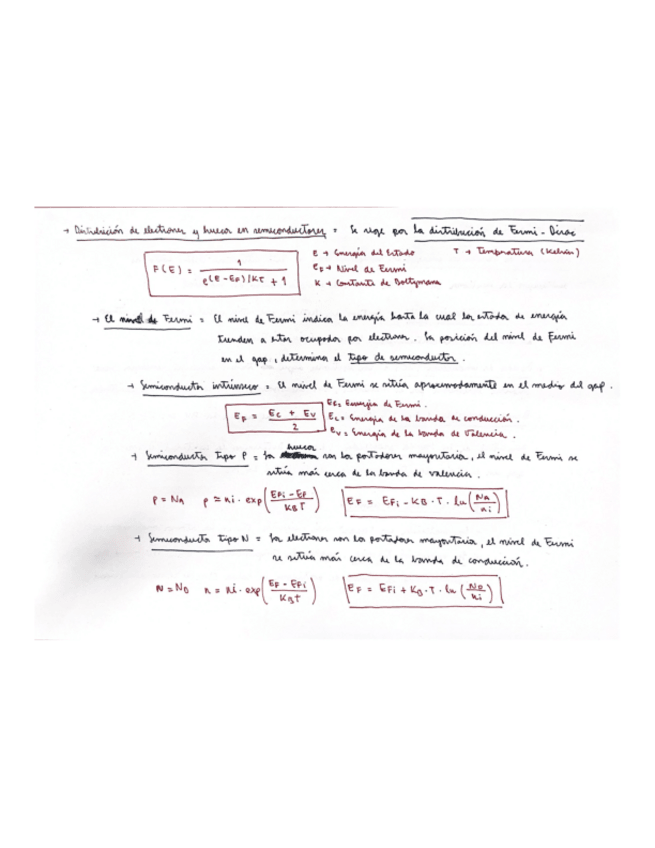 → Distribución de electrones y huecos en semiconductores = Se rige por la distribución de Fermi - Dirac
F(E) = 1 / e(E-EF)/KT + 1
E → Energía del Estado
T → Temperatura (Kelvin)
EF → Nivel de Fermi
K → Constante de Boltzmann
→ El nivel de Fermi = El nivel de Fermi indica la energía hasta la cual los estados de energía
tienden a estar ocupados por electrones. La posición del nivel de Fermi
en el gap, determina el tipo de semiconductor.
→ Semiconductor intrínseco = El nivel de Fermi se sitúa aproximadamente en el medio del gap.
EF = EC + EV / 2
EF = Energía de Fermi.
EC = Energía de la banda de conducción.
EV = Energía de la banda de Valencia.
→ Semiconductor Tipo P = Los huecos son los portadores mayoritarios, el nivel de Fermi se
sitúa más cerca de la banda de valencia.
p = NA p ≃ ni · exp(EFi - EF / KBT) EF = EFi - KB · T · ln(NA / ni)
→ Semiconductor tipo N = Los electrones son los portadores mayoritarios, el nivel de Fermi
se sitúa más cerca de la banda de conducción.
N = ND n = ni · exp(EF - EFi / KBT) EF = EFi + KB · T · ln(ND / ni)